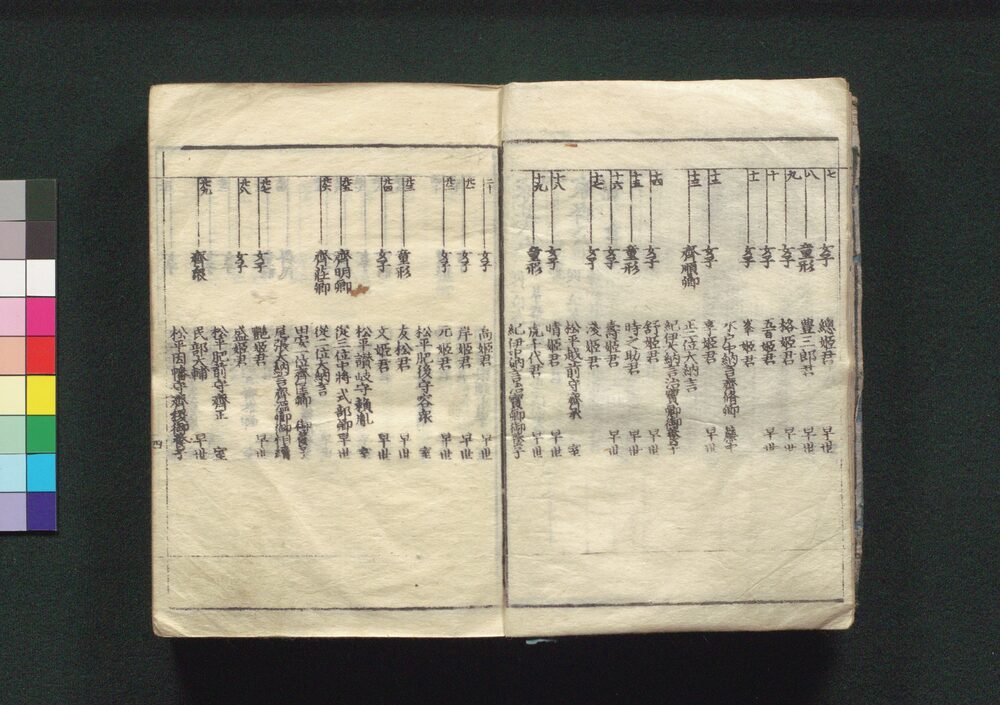 七 女子 總姫君 早世
八 童形 豊三郎君 早世
九 女子 格姫君 早世
十 女子 五百姫君 早世
十一 女子 峯姫君
水戸中納言齊脩卿 簾中
十二 女子 亨姫君 早世
十三 齊順卿 正二位大納言
紀伊大納言治寶卿御養子
十四 女子 舒姫君 早世
十五 童形 時之助君 早世
十六 女子 壽姫君 早世
十七 女子 淺姫君
松平越前守齊承 室
十八 女子 晴姫君 早世
十九 童形 虎千代君 早世
紀伊中納言治寶卿御養子
二十 女子 高姫君 早世
廿一 女子 岸姫君 早世
廿二 女子 元姫君
松平肥後守容衆 室
廿三 童形 友松君 早世
廿四 女子 文姫君
松平讃岐守頼胤 室
廿五 齊明卿 從三位中將式部卿 早世
廿六 齊莊卿 從二位大納言
田安一位齊匡卿 御養子
尾張大納言齊温卿御相續
廿七 女子 艶姫君 早世
廿八 女子 盛姫君
松平肥前守齊正 室
廿九 齊衆 民部大輔 早世
松平因幡守齊稷御養子
四